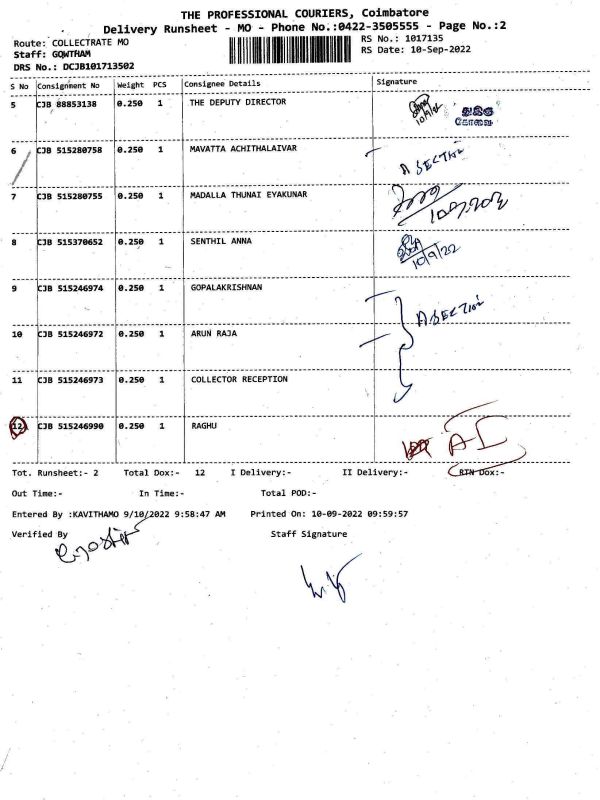 THE PROFESSIONAL COURIERS, Coimbatore
Delivery Runsheet - MO - Phone No.:0422-3505555 - Page No.:2
Route: COLLECTRATE MO
RS No.: 1017135
Staff: GOWTHAM
RS Date: 10-Sep-2022
DRS No.: DCJB101713502
S No Consignment No Weight PCS Consignee Details Signature
5 CJB 88853138 0.250 1 THE DEPUTY DIRECTOR
10/9/22
6 CJB 515280758 0.250 1 MAVATTA ACHITHALAIVAR
A SECTION
7 CJB 515280755 0.250 1 MADALLA THUNAI EYAKUNAR
8 CJB 515370652 0.250 1 SENTHIL ANNA
10/9/22
9 CJB 515246974 0.250 1 GOPALAKRISHNAN
A SECTION
10 CJB 515246972 0.250 1 ARUN RAJA
11 CJB 515246973 0.250 1 COLLECTOR RECEPTION
12 CJB 515246990 0.250 1 RAGHU
Tot. Runsheet:- 2 Total Dox:- 12 I Delivery:- II Delivery:- RTN Dox:-
Out Time:- In Time:- Total POD:-
Entered By :KAVITHAMO 9/10/2022 9:58:47 AM Printed On: 10-09-2022 09:59:57
Verified By Staff Signature